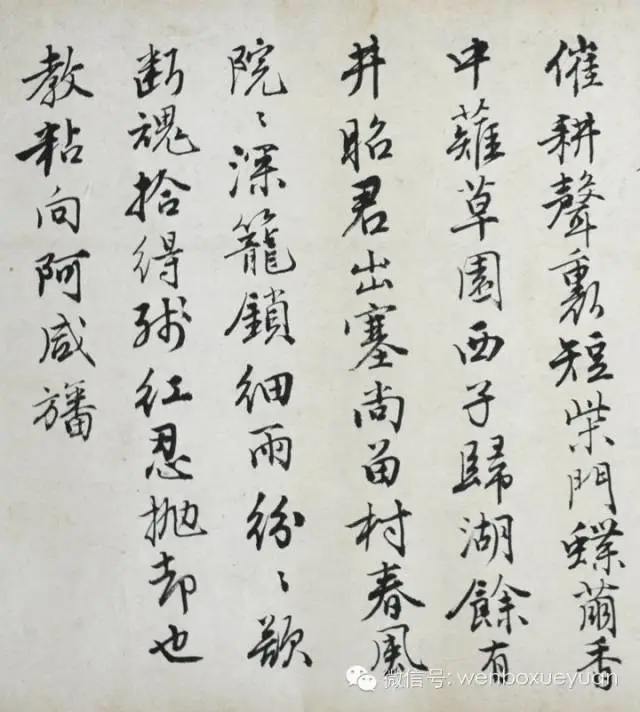 催耕聲裏短柴門蝶繭香
中薙草園西子歸湖餘有
井昭君出塞尚留村春風
院〻深籠鎖細雨紛〻欲
斷魂拾得殘紅忍拋却也
教粘向阿咸旛
微信号: wenboxueyuan